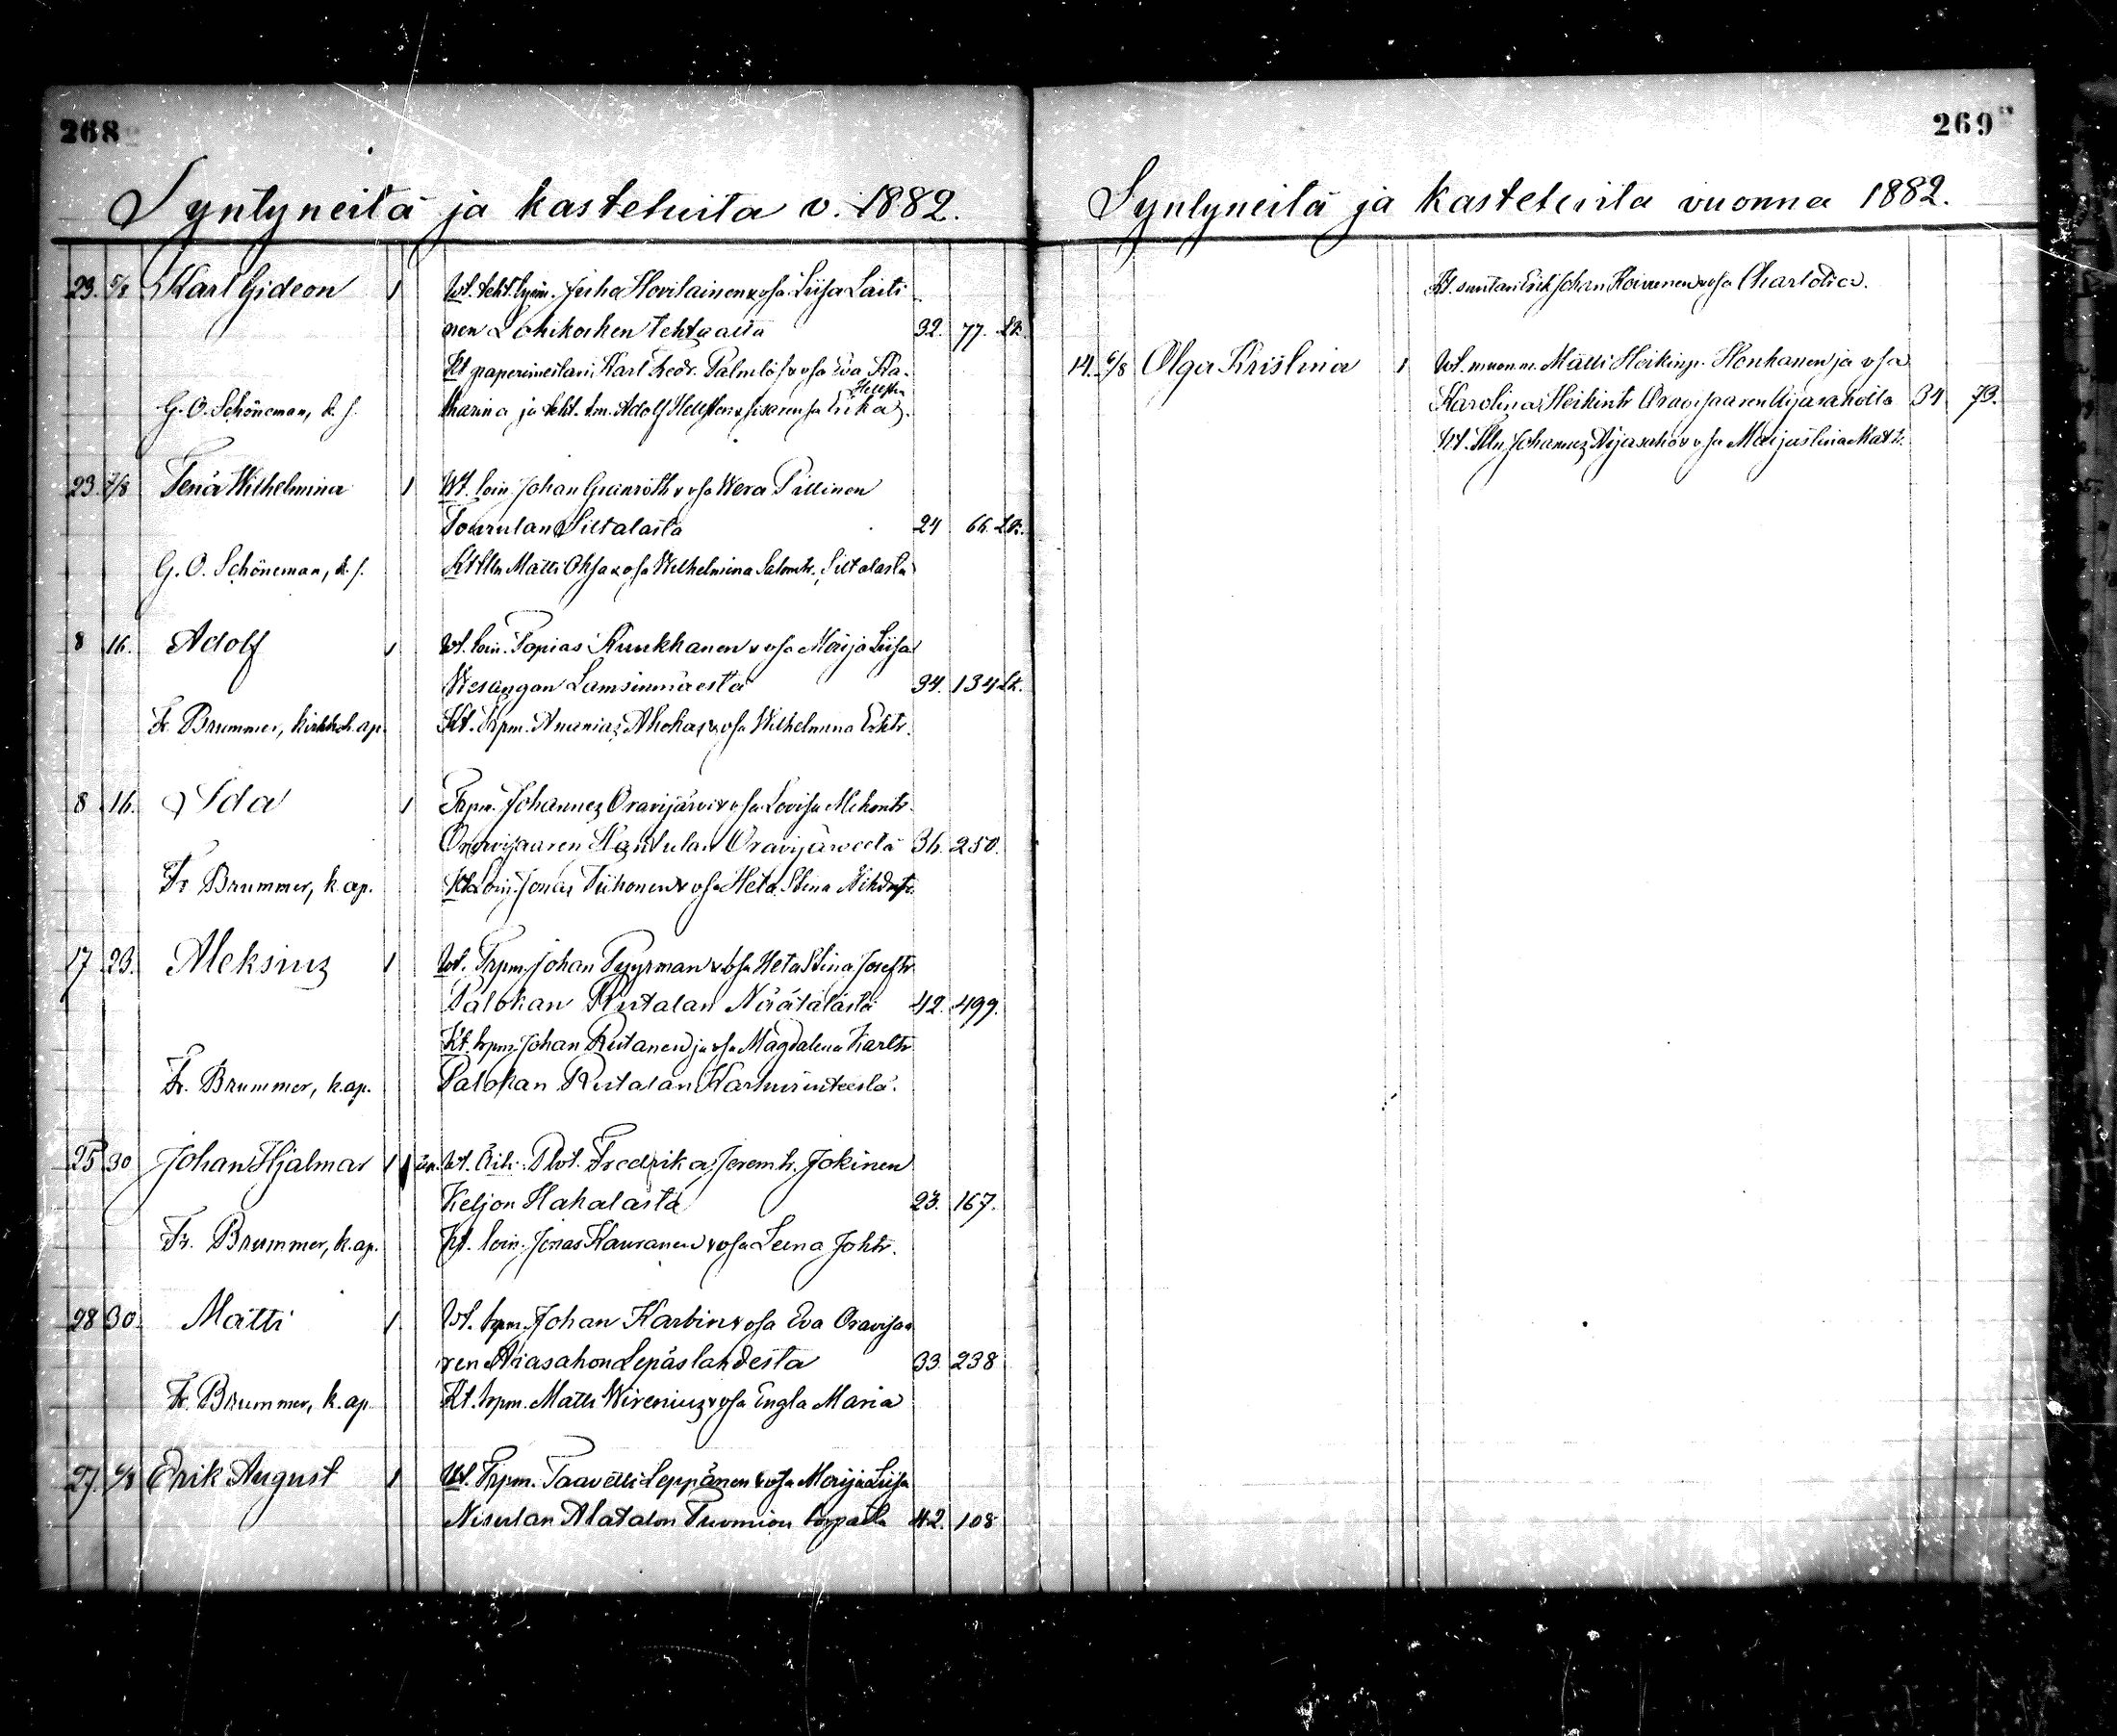 268
Syntyneitä ja kastetuita v. 1882.
23. 5/8 Karl Gideon 1 Wt. teht. tyom. Juho Hovilainen & vsa Liisa Laiti
nen Lohikosken tehtaalta 32. 77. Lk.
Kt paperimestari Karl Fredr. Palmlöf & vsa Eva Ka-
G. O. Schöneman, k. s. tharina ja teht. tm. Adolf Hellsten & sisarensa Erika Hellsten
23. 7/8 Fena Wilhelmina 1 Wt. loin. Johan Granroth & vsa Wera Pillinen
Tourulan Siltalasta 24 66. Lk.
G. O. Schöneman, k. s. Kt Itln Matti Ohsa & vsa Wilhelmina Salomtr. Siltalasta
8 16. Adolf 1 Wt. loin. Topias Kunkhanen & vsa Maija Liisa
Wesangan Lamsinmäestä 34. 134 Lk.
Fr. Brummer, kirkkoh. ap. Kt. trpm. Ananias Ahokas & vsa Wilhelmina Erktr.
8 16. Ida 1 Trpm. Johannes Oravijärvi & vsa Lovisa Mikontr.
Oravisaaren Hantulan Oravijärveltä 36. 250.
Fr Brummer, k. ap. Kt Loin. Jonas Tiihonen & vsa Heta Stina
17 23. Aleksius 1 Wt. Trpm. Johan Pyyrman & vsa Heta Stina Joseftr
Palokan Rutalan Näätälästä 42. 499.
Kt. trpm. Johan Rutanen ja vsa Magdalena Karltr
Fr. Brummer, k. ap. Palokan Rutalan
25 30 Johan Hjalmar 1 Wt. Äiti. Plvt. Fredrika Jeremtr. Jokinen
Keljon Hakalasta 23. 167.
Fr. Brummer, k. ap. Kt. loin. Jonas Kauranen & vsa Leena Johtr.
28 30. Matti 1 Wt. trpm. Johan Karbin & vsa Eva Oravisaa
ren Aiasahon Lepäslahdesta 33. 238
Fr. Brummer, k. ap. Kt. trpm. Matti Wirenius & vsa Engla Maria
27. 6/8 Erik August 1 Wt. Trpm. Taavetti Leppänen & vsa Maija Liisa
Nisulan Alatalon Tuomion torpasta 42. 108
269
Syntyneitä ja kastetuita vuonna 1882.
Kt. suntari Erik Johan Koivunen & vsa Charlotta.
14. 6/8 Olga Kristina 1 Wt. muonm. Matti Heikinp. Honkanen ja vsa
Karolina Heikintr Oravisaaren Aijasaholla 34 73.
Kt. Itln Johannes Aijasaho & vsa Maija Stina Mattr.